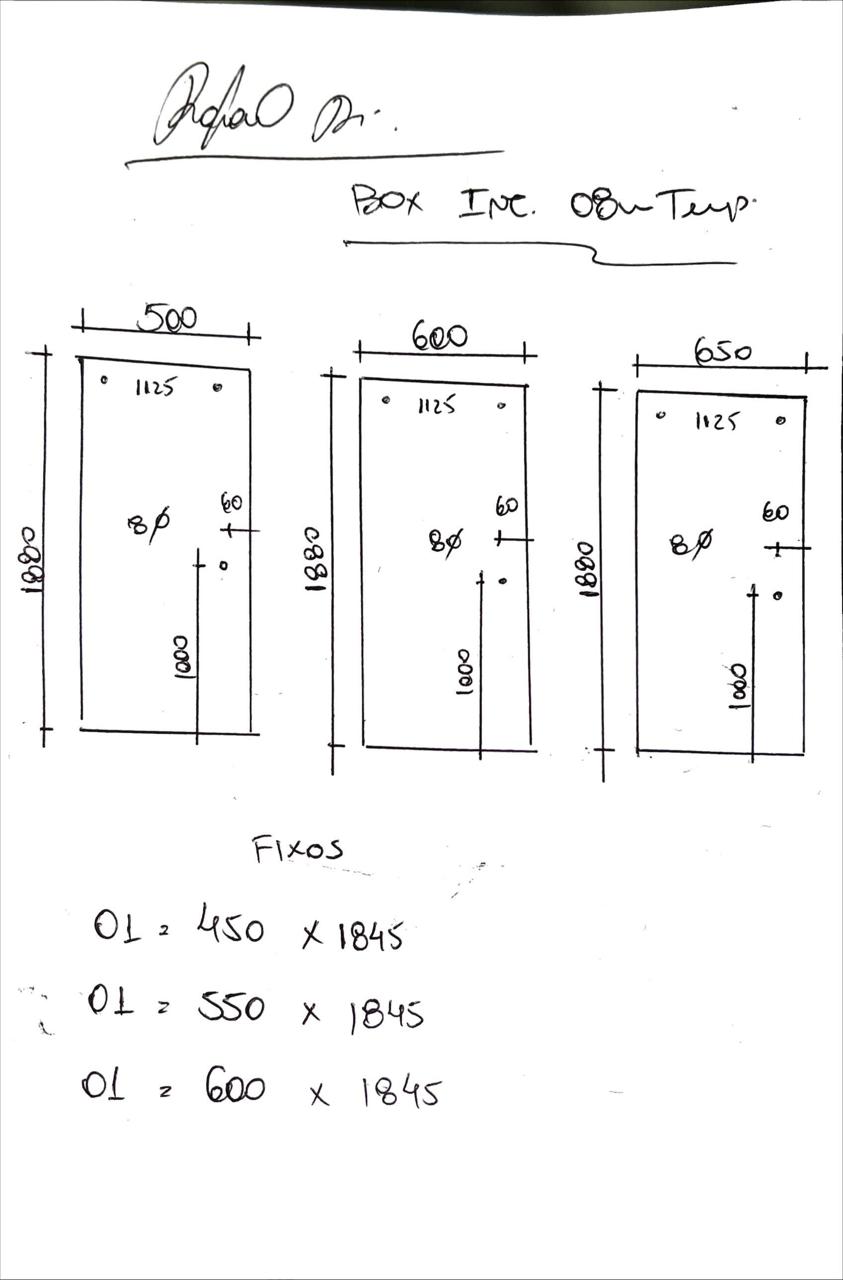 Rafael
BOX INC. 08m Temp.
500
600
650
1125
1125
1125
60
60
60
8ø
8ø
8ø
1880
1880
1880
1000
1000
1000
FIXOS
01 = 450 x 1845
01 = 550 x 1845
01 = 600 x 1845